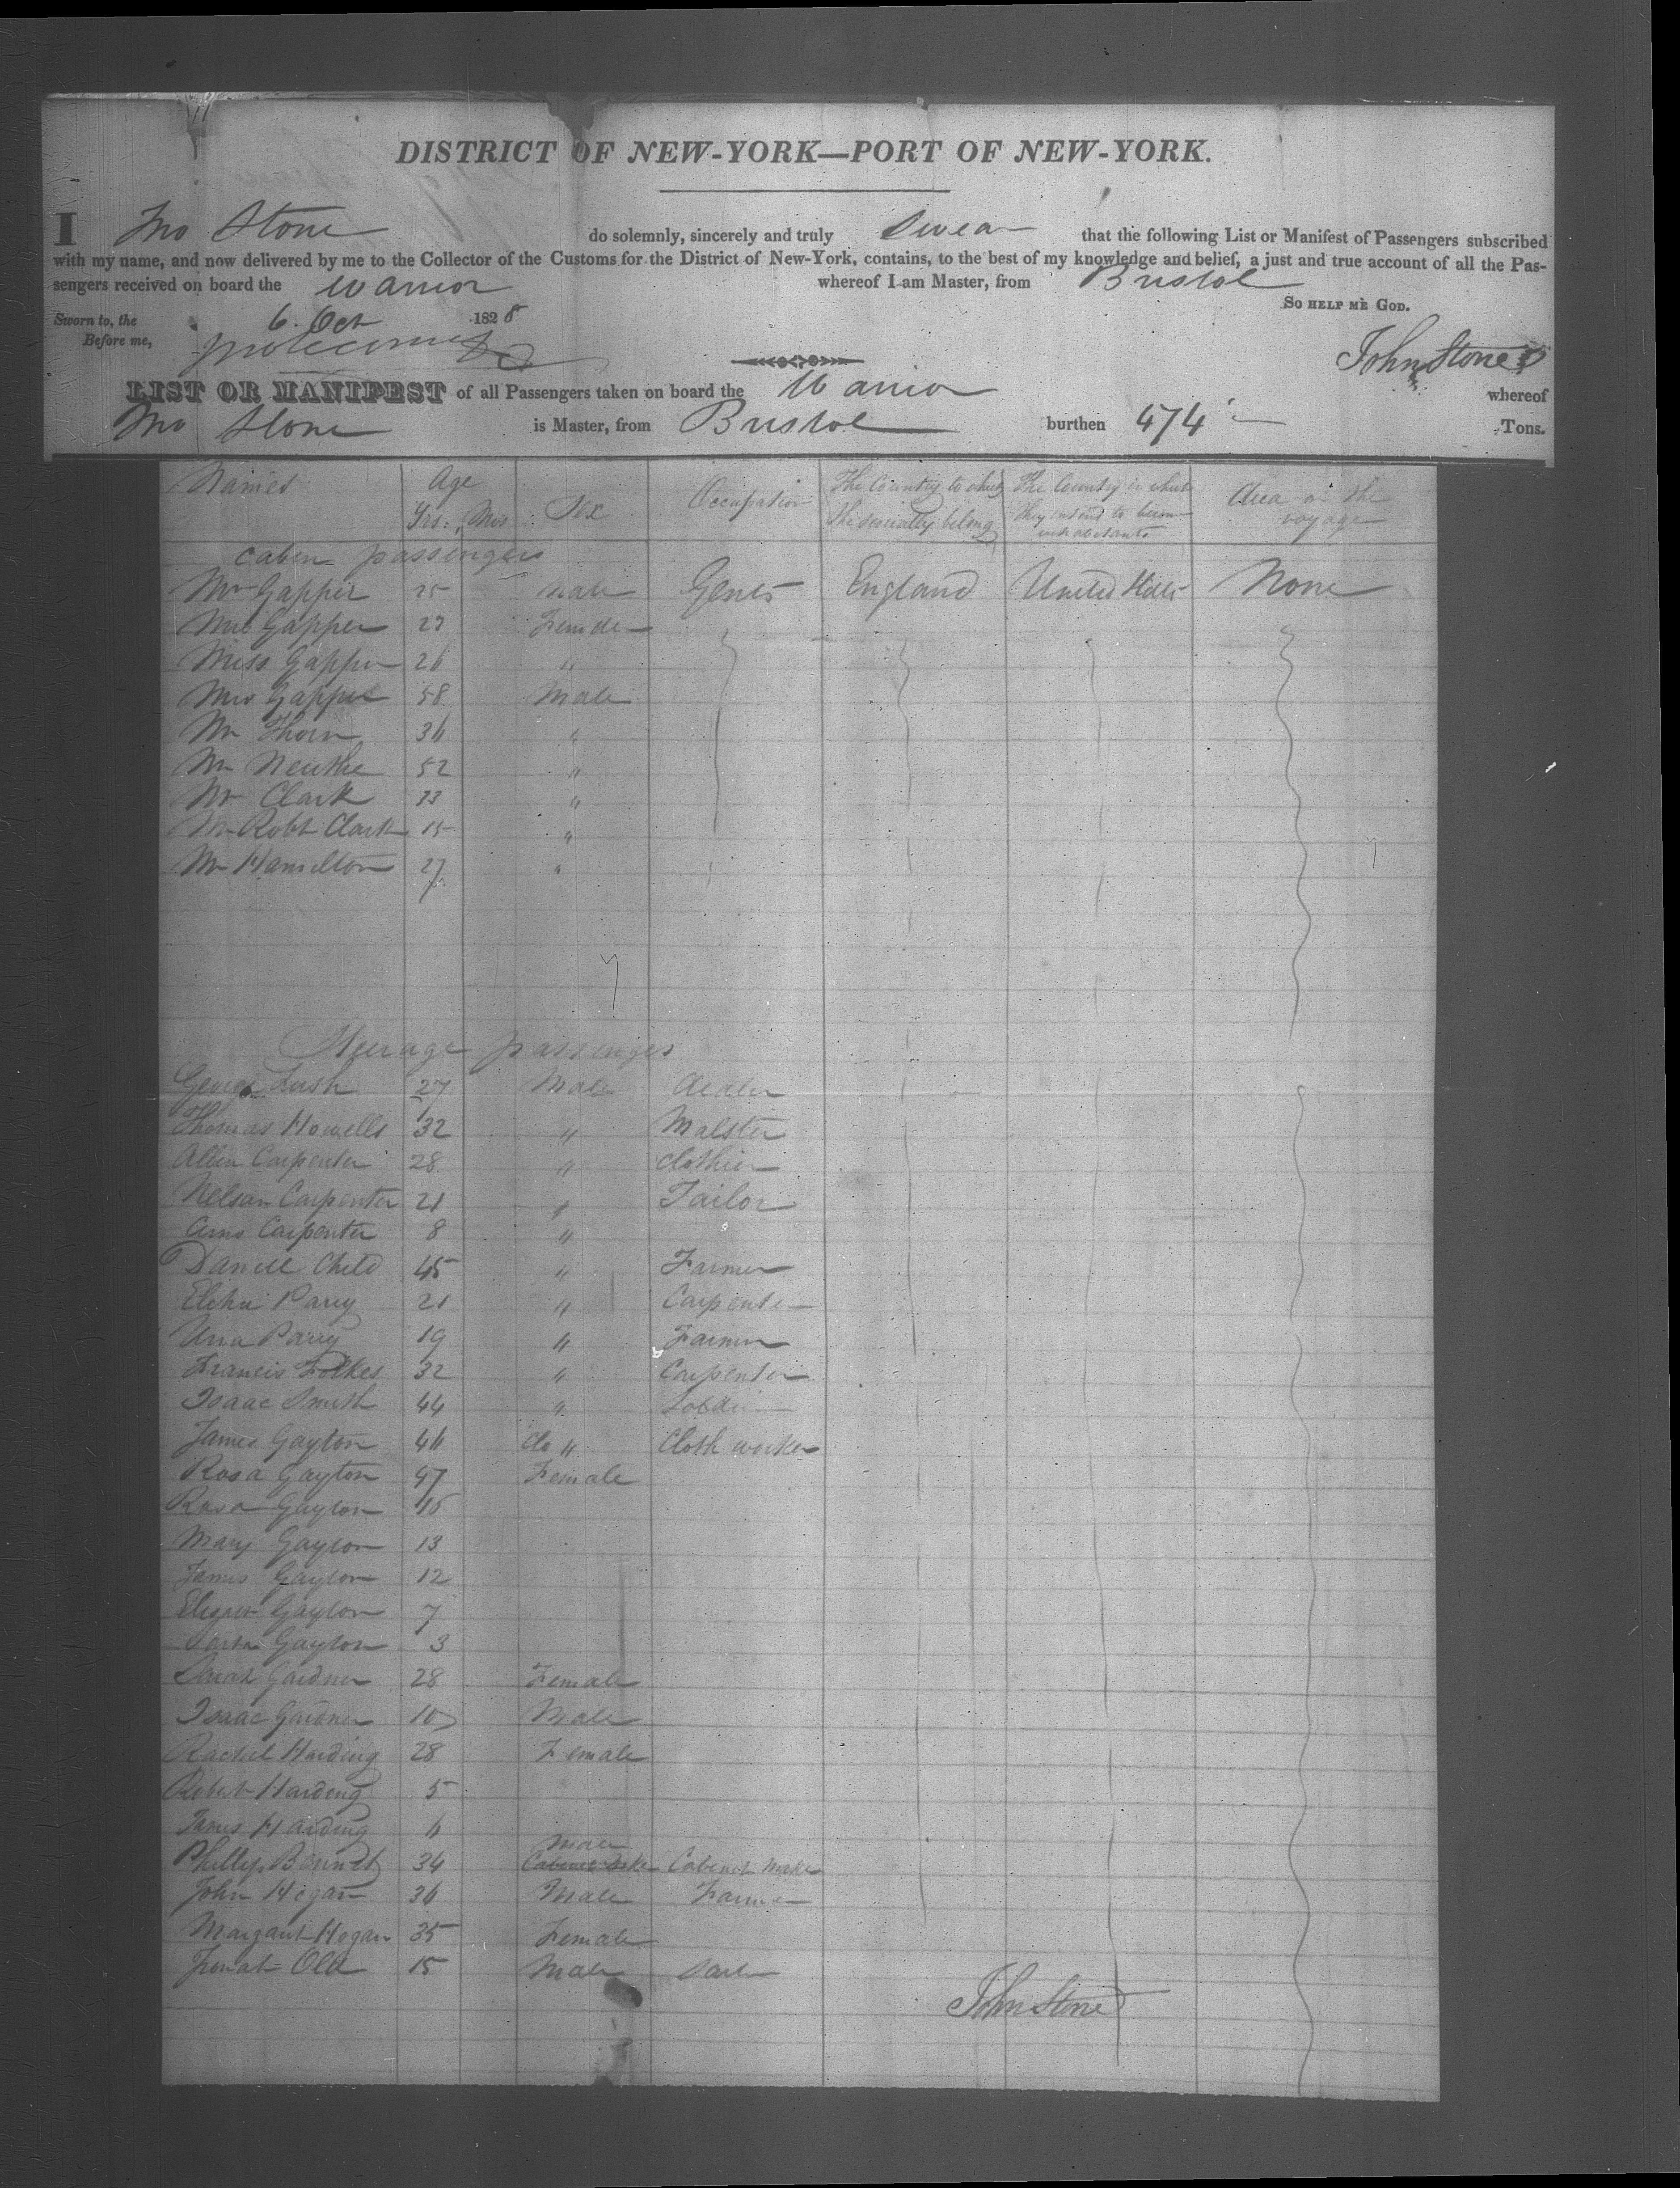 DISTRICT OF NEW-YORK—PORT OF NEW-YORK.
I Jno Stone do solemnly, sincerely and truly Swear that the following List or Manifest of Passengers subscribed
with my name, and now delivered by me to the Collector of the Customs for the District of New-York, contains, to the best of my knowledge and belief, a just and true account of all the Pas-
sengers received on board the Warrior whereof I am Master, from Bristol
So HELP ME GOD.
Sworn to, the 6. Oct 1828
Before me,
John Stone
LIST OR MANIFEST of all Passengers taken on board the Warrior whereof
Jno Stone is Master, from Bristol burthen 474 Tons.
Names Age Yrs. Mos Sex Occupation The Country to which they severally belong The Country in which they intend to become inhabitants on the voyage
Caben passengers
Mr Gapper 25 male Gents England United States None
Mrs Gapper 27 Female
Miss Gapper 26 "
Mrs Gapper 58 Male
Mr Thorn 36 "
Mr 52 "
Mr Clark 33 "
Mr Robt Clark 15 "
Mr Hamilton 27 "
Steurage passenges
George Lush 27 Male
Thomas Howells 32 " Malster
Allen Carpenter 28 " Clothier
Nelson Carpenter 21 " Tailor
Carpenter 8 "
Daniell Child 45 " Farmer
Parry 21 " Carpenter
Parry 19 " Farmer
Francis Folkes 32 " Carpenter
Isaac Smith 44 "
James Gayton 46 do " Cloth worker
Rosa Gayton 47 Female
Rosa Gayton 16
Mary Gayton 13
James Gayton 12
Gayton 7
Gayton 3
Sarah Gardner 28 Female
Isaac Gardner 10 Male
Rachel Harding 28 Female
Robert Harding 5
James Harding 6
Male
Phillip Bennet 34 Cabinet Maker Cabinet Maker
John Hogan 36 Male Farmer
Margaret Hogan 35 Female
Old 15 Male
John Stone